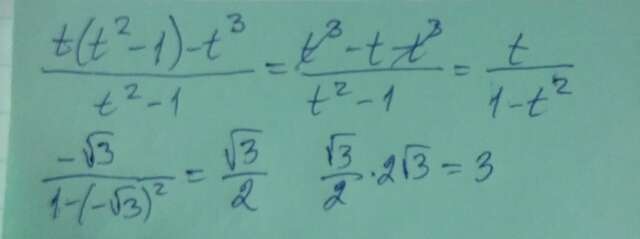 (t(t²-1)-t³)/(t²-1) = (t³-t-t³)/(t²-1) = t/(1-t²)
(-√3)/(1-(-√3)²) = √3/2   √3/2 · 2√3 = 3